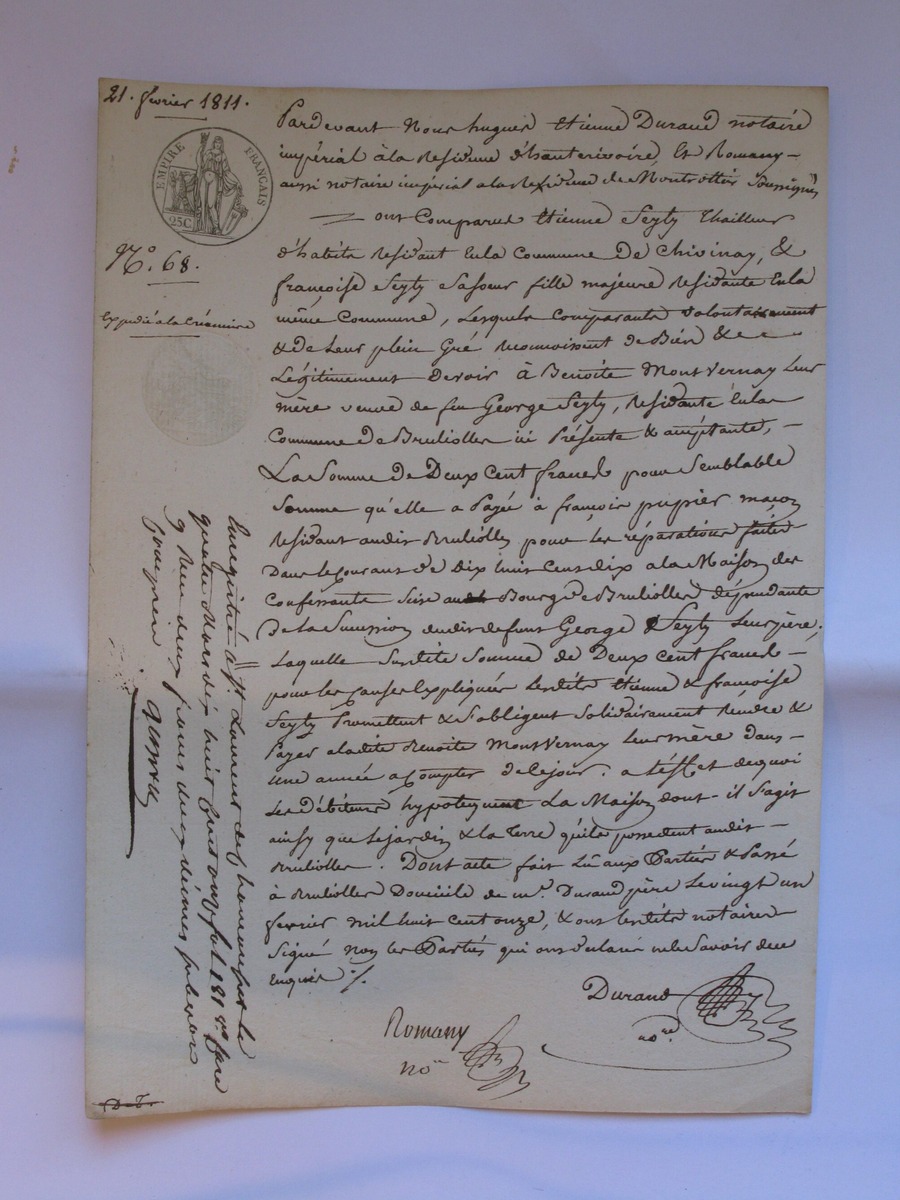 21. février 1811.
EMPIRE FRANÇAIS
25C
N.o 68.
Expedié a la Créanciere
Pardevant Nous hugues Etienne Durand notaire
impérial à la Residence d'hauterivoire, Et Romany
aussi notaire impérial a la Residence de Montrottier soussignés
ont Comparus Etienne Seyty thailleur
d'habits Residant En la Commune De Chivinay, &
françoise Seyty Sa soeur fille majeure Residante En la
même Commune, Lesquels Comparants volontairement
& de Leur plein Gré reconnoissent de Bien &
Légitimement Devoir à Benoite MontVernay Leur
mère veuve de feu George Seyty, Residante En la
Commune de Brulioller ici Présente & acceptante,
La Somme de Deux Cent francs pour Semblable
Somme qu'elle a Payée à françois pupier maçon
Residant audit Brulioller pour les réparations faites
Dans le Courant de Dix huit Cent dix a la Maison des
Confessants Sise au Bourg de Brulioller dépendante
De la Succession dudit defunt George Seyty Leur père;
Laquelle Susdite Somme de Deux Cent francs
pour les Causes Expliquées Lesdits Etienne & françoise
Seyty Promettent & S'obligent Solidairement Rendre &
Payer a ladite Benoite MontVernay Leur Mère dans
une année a Compter de Ce jour. a L'effet de quoi
Les Débiteurs hypotequent La Maison dont il S'agit
ainsy que Le jardin & la terre qu'ils possedent audit
Brulioller. Dont acte fait Lû aux Parties & Passé
à Brulioller Domicile de m.r Durand père Le vingt un
février mil huit Cent onze, & ont lesdits notaires
Signé non les Parties qui ont déclaré ne le Savoir de ce
Enquis ./.
Durand
no.re
Romany
no.re
Enregistré à S.t Laurent de Chamousset le
quatre Mars dix huit Cent onze fol. 181 v.o Case
9 Reçu deux francs deux décimes
D. T.